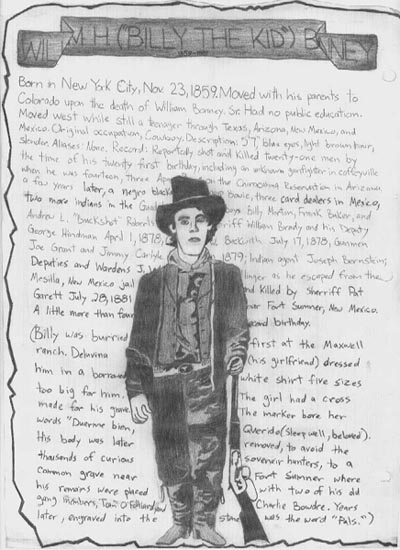 WILLIAM H ("BILLY THE KID") BONNEY
1859-1881
Born in New York City, Nov. 23, 1859. Moved with his parents to
Colorado upon the death of William Bonney. Sr. Had no public education.
Moved west while still a teenager through Texas, Arizona, New Mexico, and
Mexico. Original occupation, Cowboy. Description: 5'7", blue eyes, light brown hair,
slender. Aliases: None. Record: Reportedly shot and killed Twenty-one men by
the time of his twenty first birthday, including an unknown gunfighter in coffeyville
when he was fourteen, three Apa on the Chiricahua Reservation in Arizona
a few years later, a negro black Bowie, three card dealers in Mexico,
two more indians in the Guad boys Billy Morton, Frank Baker, and
Andrew L. "Buckshot" Roberts Sherriff William Brady and His Deputy
George Hindman April 1, 1878, Beckwith July 17, 1878, Gunmen
Joe Grant and Jimmy Carlyle 1879; Indian agent Joseph Bernstein;
Deputies and Wardens J. W linger as he escaped from the
Mesilla, New Mexico jail and Killed by Sherriff Pat
Garett July 28, 1881 near Fort Sumner, New Mexico.
A little more than four cond birthday.
(Billy was burried first at the Maxwell
ranch. Deluvina (his girlfriend) dressed
him in a borrowed white shirt five sizes
too big for him. The girl had a cross
made for his grave. The marker bore her
words "Duerme bien, Querido (Sleep well, beloved").
His body was later removed, to avoid the
thousands of curious souvenir hunters, to a
common grave near Fort Sumner where
his remains were placed with two of his old
gang members, Tom O'Folliard and Charlie Bowdre. Years
later, engraved into the stone was the word "Pals.")